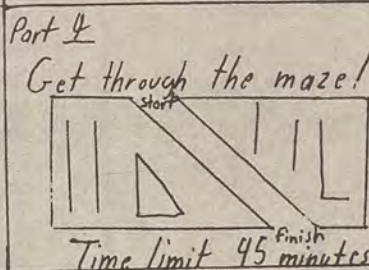 Part 4
Get through the maze!
start
finish
Time limit 45 minutes